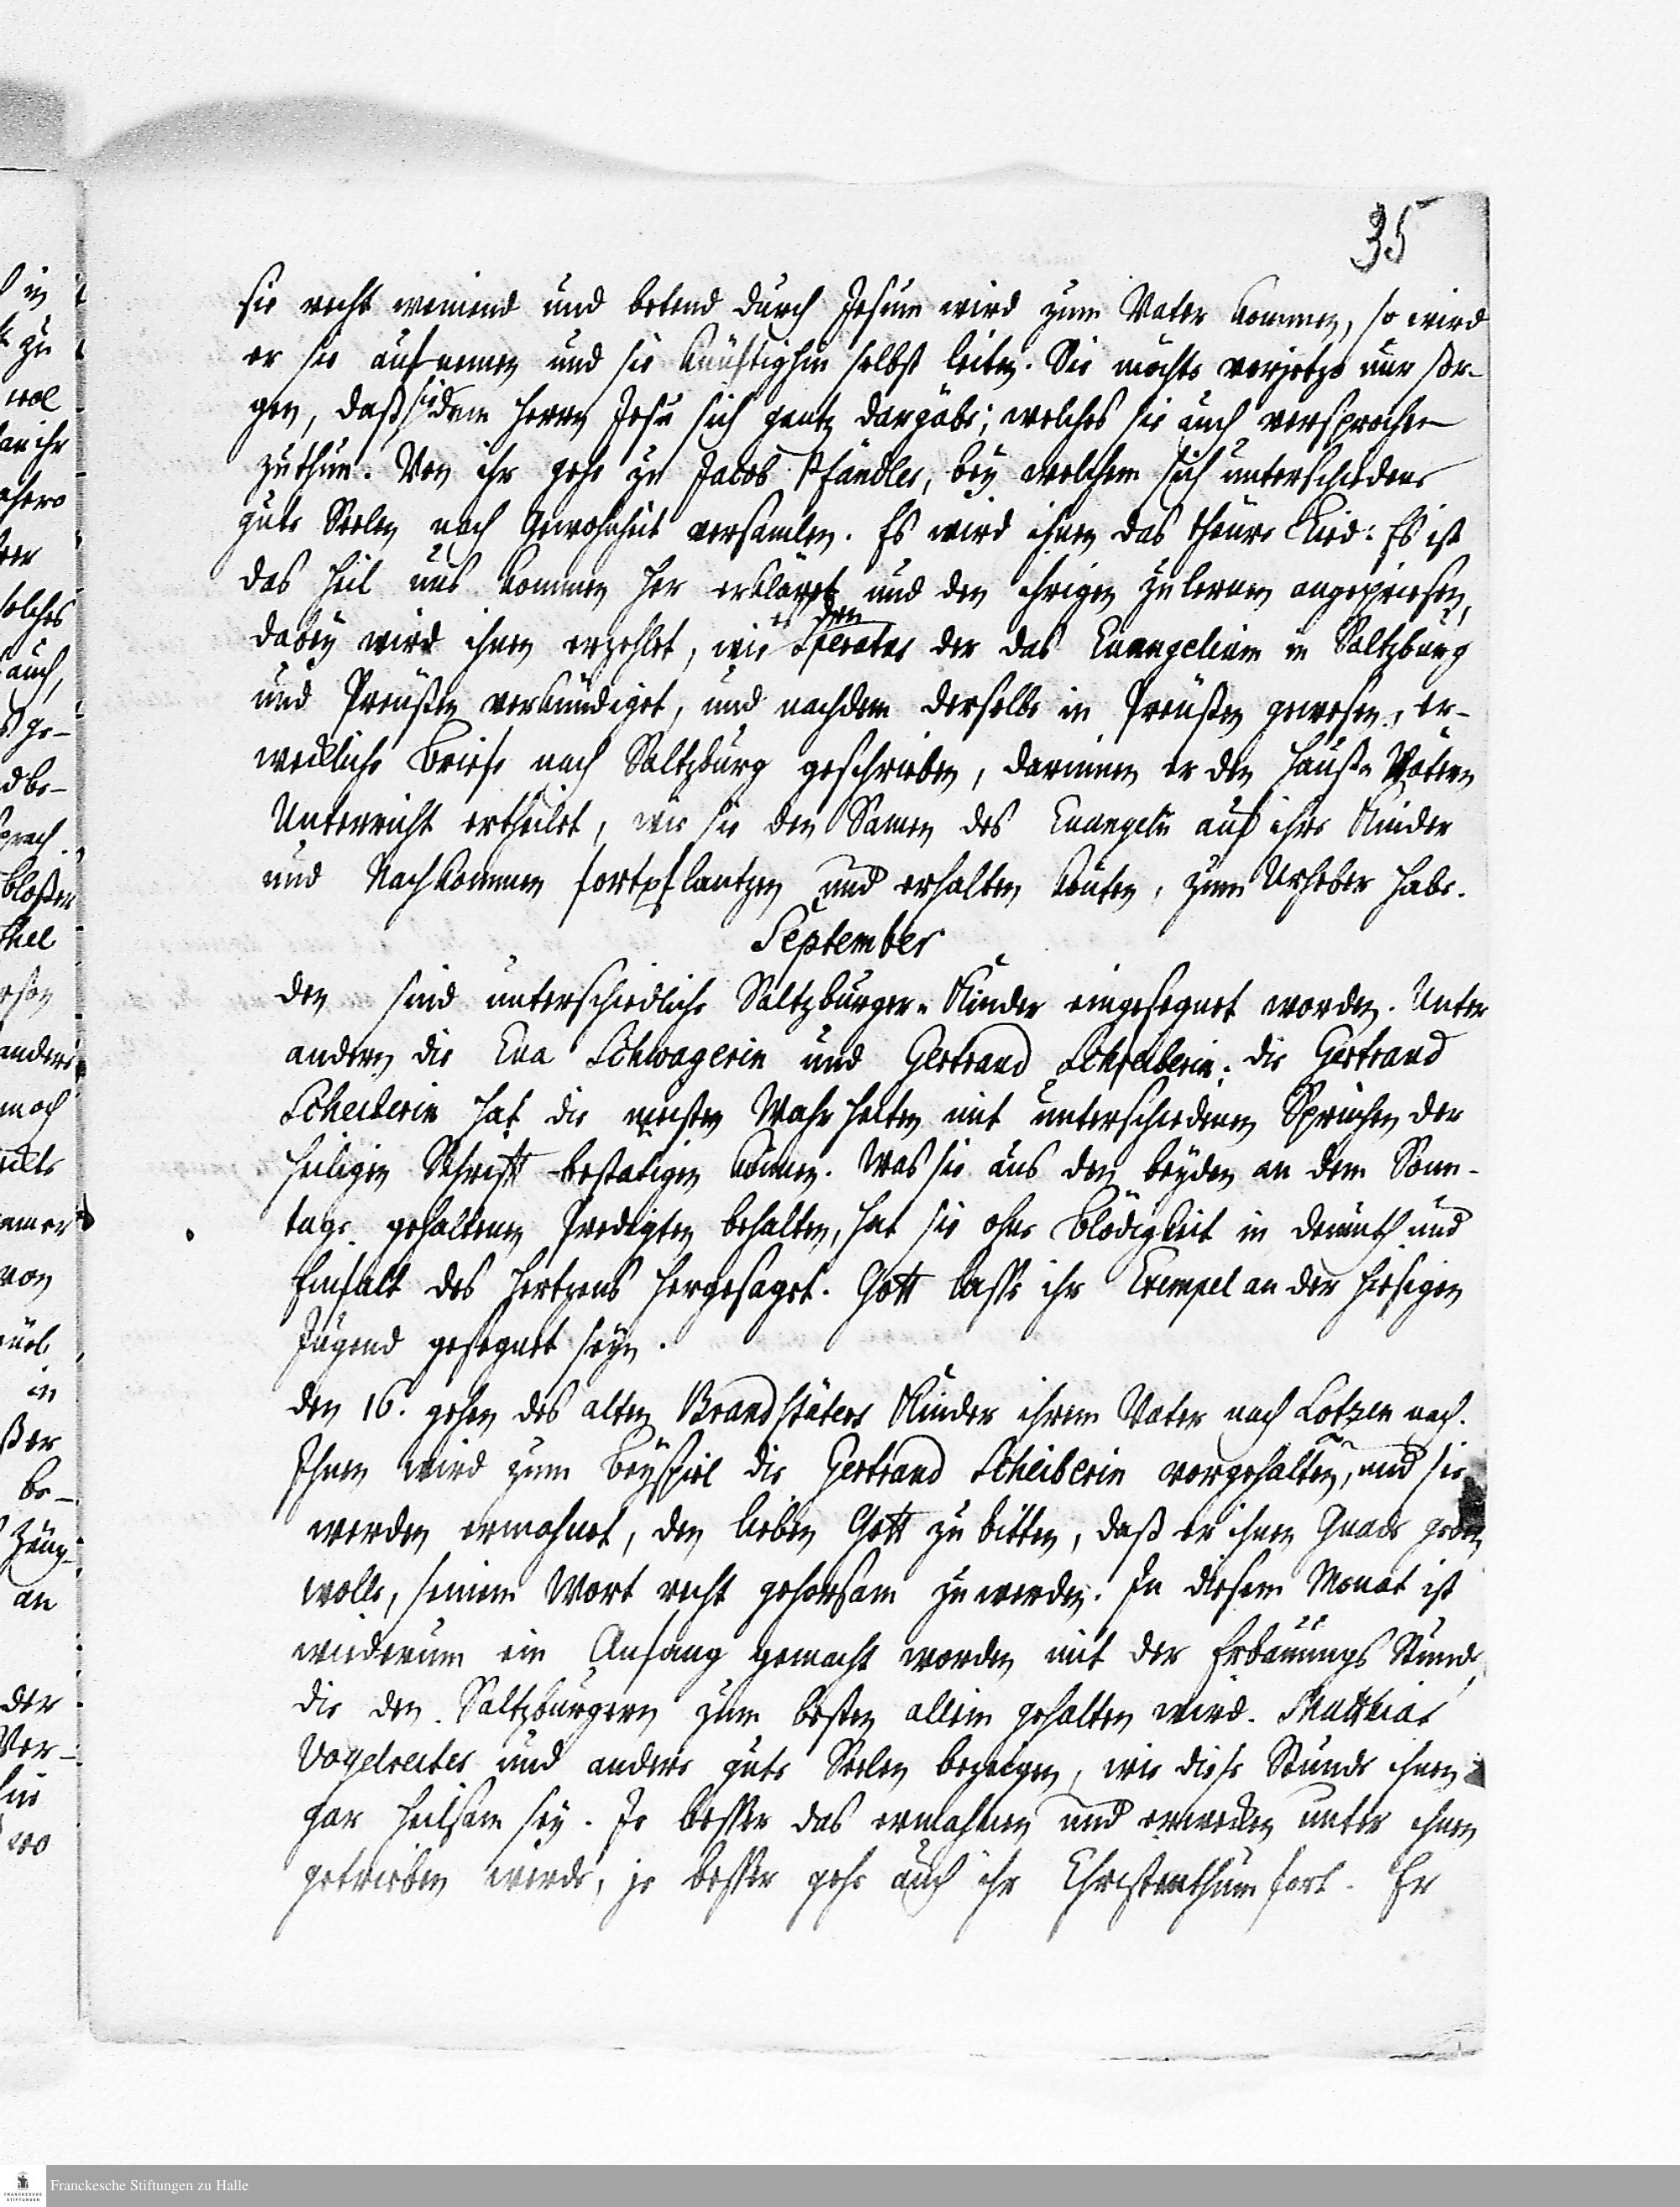 35
sie recht weinend und betend durch Jesum wird zum Vater kommen, so wird
er sie aufnemen und sie künftighin selbst leiten. Sie möchte vorjetzo nur sor-
gen, daß sie dem Herrn Jesu sich gantz dargäbe; welches sie auch versprochen
zuthun. Von ihr gehe zu Jacob Pfändler, bey welchem sich unterschiedene
gute Seelen nach Gewohnheit versamlen. Es wird ihnen das theure Lied: Es ist
das Heil uns kommen her erkläret und den ihrigen zu lernen angepriesen,
es den
dabey wird ihnen erzehlet, wie Speratus der das Evangelium in Saltzburg
und Preußen verkündiget, und nachdem derselbe in Preußen gewesen, er-
weckliche Briefe nach Saltzburg geschrieben, darinnen er den Hauß-Vätern
Unterricht ertheilet, wie sie den Samen des Evangelii auf ihre Kinder
und Nachkommen fortpflantzen und erhalten könten, zum Urheber habe.
September
den sind unterschiedliche Saltzburger-Kinder eingesegnet worden. Unter
andern die Eva Schwagerin und Gertraud Scheiberin; die Gertraud
Scheiberin hat die meisten Wahrheiten mit unterschiedenen Sprüchen der
heiligen Schrifft bestätigen können. Was sie aus den beyden an dem Sonn-
tage gehaltenen Predigten behalten, hat sie ohne Blödigkeit in Demuth und
Einfalt des Hertzens hergesaget. Gott lasse ihr Exempel an der hiesigen
Jugend gesegnet seyn.
den 16. gehen des alten Brandstäters Kinder ihrem Vater nach Lötzen nach.
Ihnen wird zum Beyspiel die Gertraud Scheiberin vorgehalten, und sie
werden ermahnet, den lieben Gott zu bitten, daß er ihnen Gnade geben
wolle, seinem Wort recht gehorsam zu werden. In diesem Monat ist
wiederum ein Anfang gemacht worden mit der Erbauungs Stunde,
die den Saltzburgern zum besten allein gehalten wird. Matthias
Vogelreiter und andere gute Seelen bezeigen, wie diese Stunde ihnen
gar heilsam sey. Je besser das ermahnen und erwecken unter ihnen
getrieben werde, je besser gehe auch ihr Christenthum fort. Er
Franckesche Stiftungen zu Halle